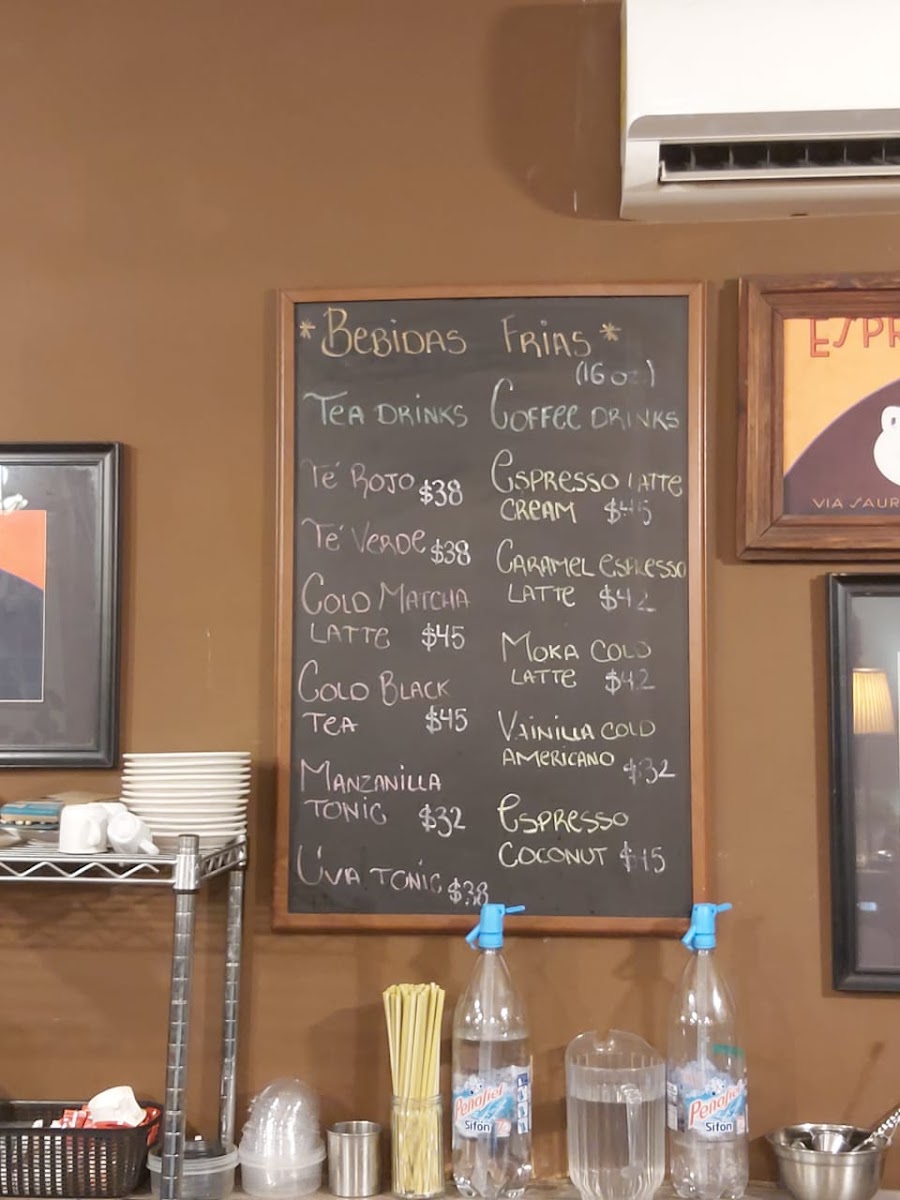 *Bebidas Frias*
(16 oz)
Tea Drinks
Té Rojo $38
Té Verde $38
Cold Matcha
Latte $45
Cold Black
Tea $45
Manzanilla
Tonic $32
Uva Tonic $38
Coffee Drinks
Espresso Latte
Cream $45
Caramel Espresso
Latte $42
Moka Cold
Latte $42
Vainilla Cold
Americano $32
Espresso
Coconut $45
VIA SAUR
Peñafiel
Sifón
Peñafiel
Sifón